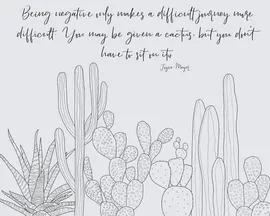 Being negative only makes a difficult journey more
difficult. You may be given a cactus, but you don't
have to sit on it.
Joyce Meyer